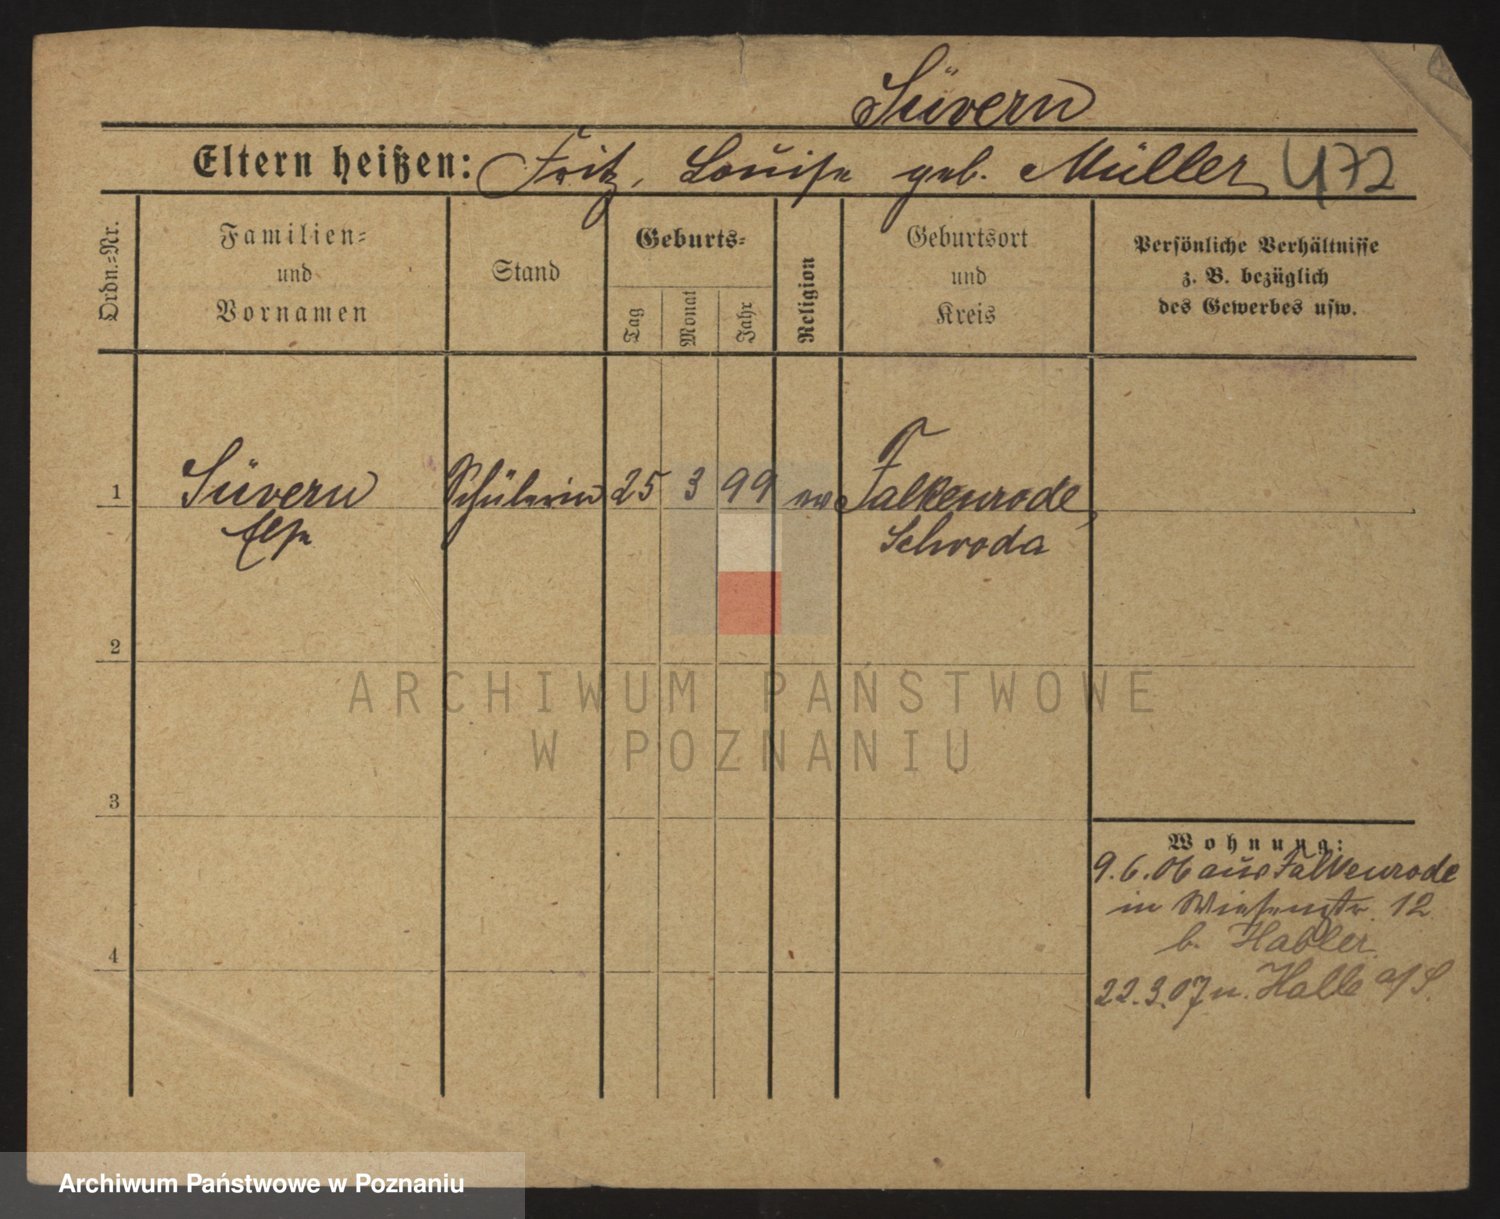 Süvern
Eltern heißen: Fritz, Louise geb. Müller 472
Ordn.-Nr.
Familien-
und
Vornamen
Stand
Geburts-
Tag
Monat
Jahr
Religion
Geburtsort
und
Kreis
Persönliche Verhältnisse
z. B. bezüglich
des Gewerbes usw.
1 Süvern Schülerin 25 3 99 ev Falkenrode,
Else Schroda
2
ARCHIWUM PAŃSTWOWE
W POZNANIU
3
Wohnung:
9.6.06 aus Falkenrode
in Wiesenstr. 12
b. Habler
4
22.3.07 n. Halle a/S.
Archiwum Państwowe w Poznaniu